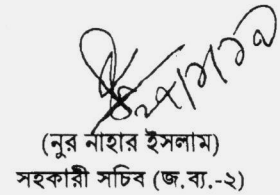 (নুর নাহার ইসলাম)
সহকারী সচিব (জ.ব্য.-২)